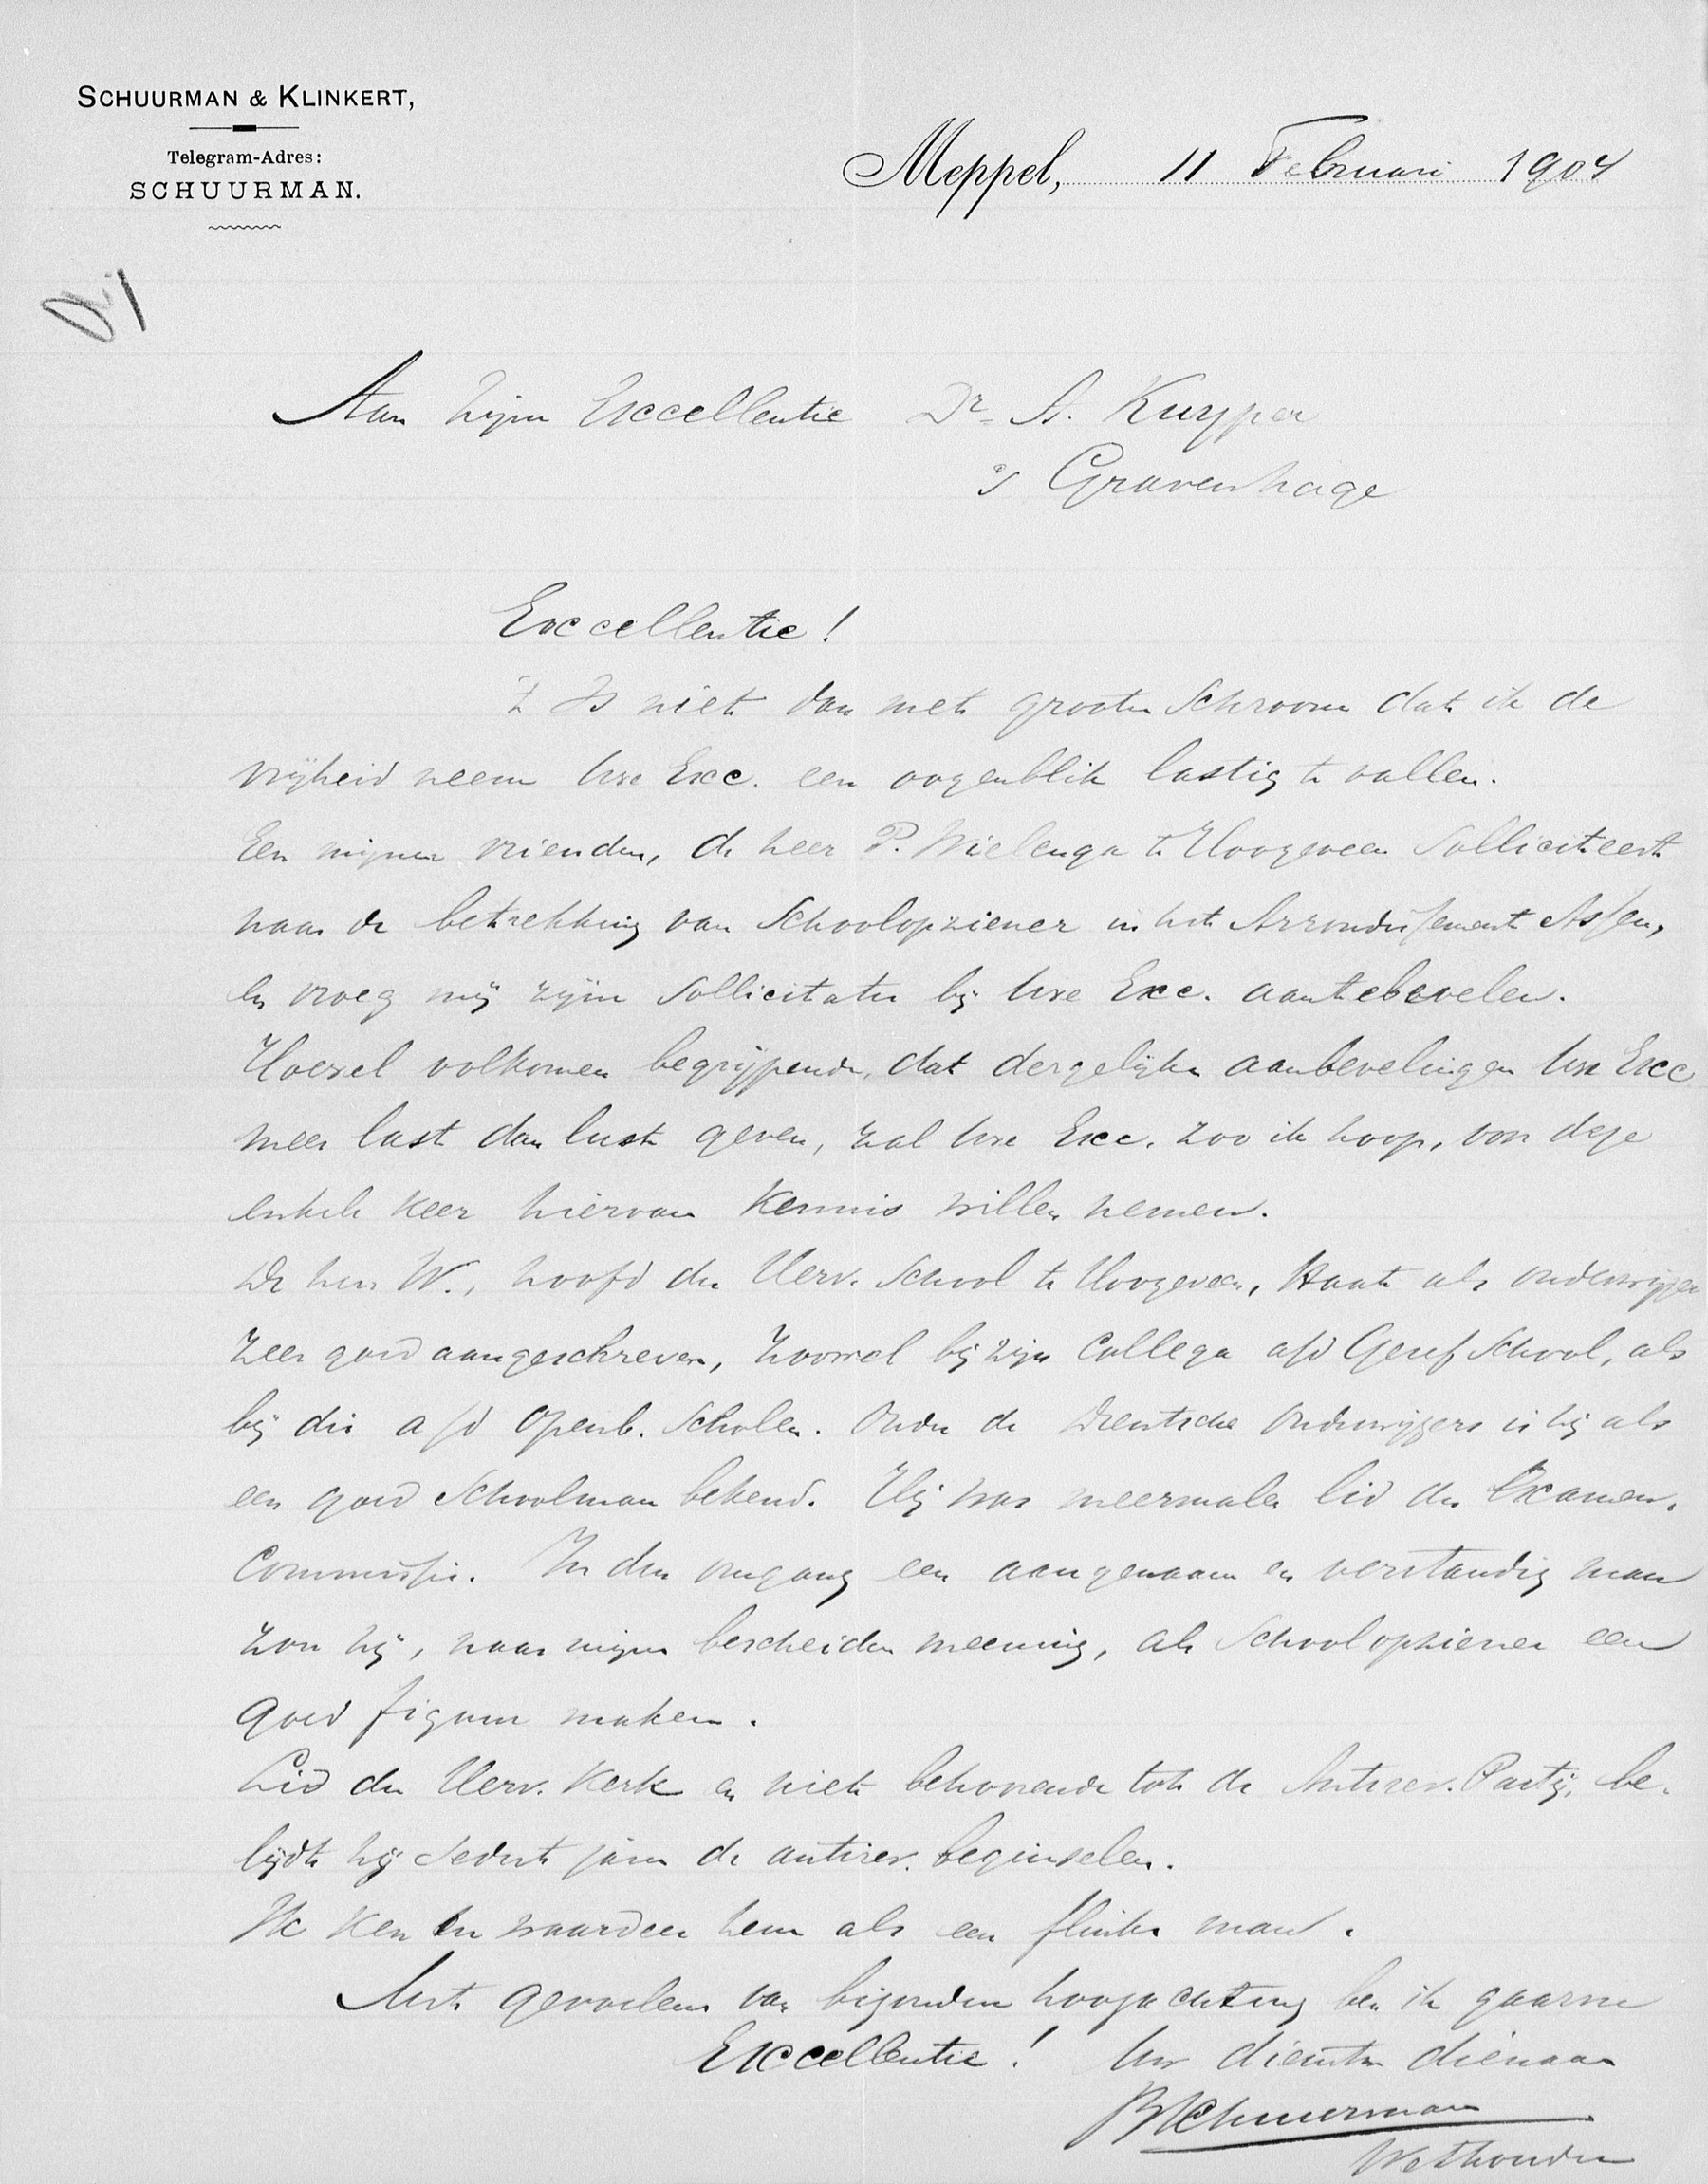 SCHUURMAN & KLINKERT,
Telegram-Adres:
SCHUURMAN.
Meppel, 11 Februari 1904
Aan Zijne Exccellentie Dr. A. Kuyper
's Gravenhage
Exccellentie!
't Is niet dan met grooten schroom dat ik de
vrijheid neem Uwe Exc. een oogenblik lastig te vallen.
Een mijner vrienden, de heer P. Wielenga te Hoogeveen solliciteert
naar de betrekking van Schoolopziener in het Arrondissement Assen,
en vroeg mij zijne sollicitatie bij Uwe Exc. aantebevelen.
Hoewel volkomen begrijpende, dat dergelijke aanbevelingen Uwe Exc
meer last dan lust geven, zal Uwe Exc. zoo ik hoop, voor deze
enkele keer hiervan kennis willen nemen.
De heer W., hoofd der Herv. School te Hoogeveen, staat als onderwijzer
zeer goed aangeschreven, zoowel bij zijn Collega a/d Geref School, als
bij die a/d Openb. Scholen. Onder de Drentsche Onderwijzers is hij als
een goed Schoolman bekend. Hij was meermalen lid der Examen.
Commissie. In den omgang een aangenaam en verstandig man
zou hij, naar mijne bescheiden meening, als Schoolopziener een
goed figuur maken.
Lid der Herv. Kerk en niet behoorende tot de Antirev. Partij, be-
lijdt hij sedert jaren de antirev. beginselen.
Ik ken en waardeer hem als een flinke man.
Met gevoelens van bijzondere hoogachting ben ik gaarne
Exccellentie! Uw dienstw dienaar
Schuurman
Wethouder